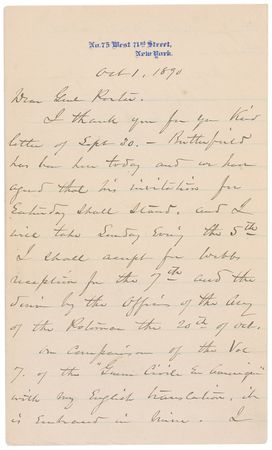 No. 75 West 71st Street,
New York.
Oct 1, 1890
Dear Genl Porter.
I thank you for your kind
letter of Sept 30. – Butterfield
has been here today and we have
agreed that his invitation for
Saturday shall stand. and I
will take Sunday Evening the 5th
I shall accept for Webbs
reception for the 7th and the
dinner by the Officers of the Army
of the Potomac the 20th of Oct.
on comparison of the Vol
7. of the "Guerre Civile En Amerique"
with my English translation, it
is Embraced in mine. I